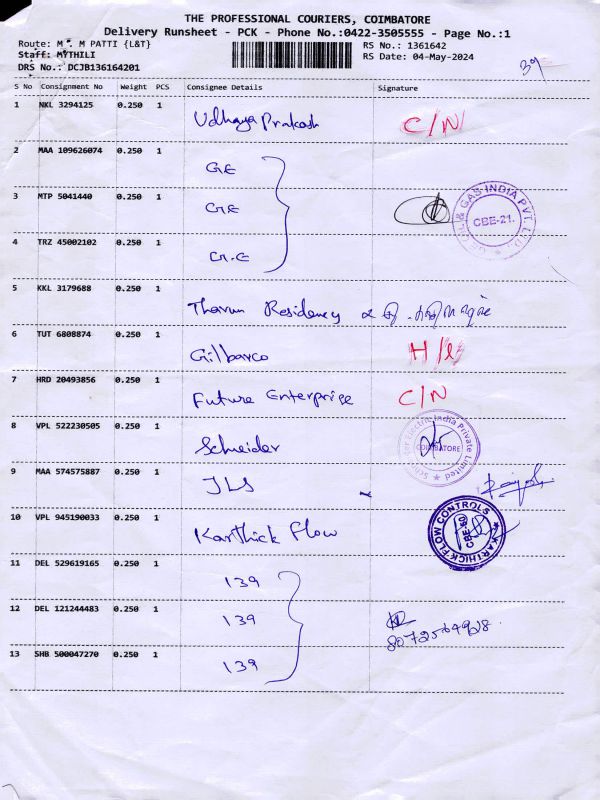 THE PROFESSIONAL COURIERS, COIMBATORE
Delivery Runsheet - PCK - Phone No.:0422-3505555 - Page No.:1
Route: M . M PATTI {L&T}
RS No.: 1361642
Staff: MYTHILI
RS Date: 04-May-2024
DRS No.: DCJB136164201
39
S No Consignment No Weight PCS Consignee Details Signature
1 NKL 3294125 0.250 1 Udhaya Prakash C/N
2 MAA 109626074 0.250 1 GE
3 MTP 5041440 0.250 1 GE GE OIL & GAS INDIA PVT. LTD. CBE-21.
4 TRZ 45002102 0.250 1 G.E
5 KKL 3179688 0.250 1 Tharun Residency
6 TUT 6808874 0.250 1 Gilbarco H/L
7 HRD 20493856 0.250 1 Future Enterprise C/N
8 VPL 522230505 0.250 1 Schneider Schneider Electric India Private Limited COIMBATORE
9 MAA 574575887 0.250 1 JLS
10 VPL 945190033 0.250 1 Karthick Flow KARTHICK FLOW CONTROLS CBE-60
11 DEL 529619165 0.250 1 139
12 DEL 121244483 0.250 1 139
13 SHB 500047270 0.250 1 139